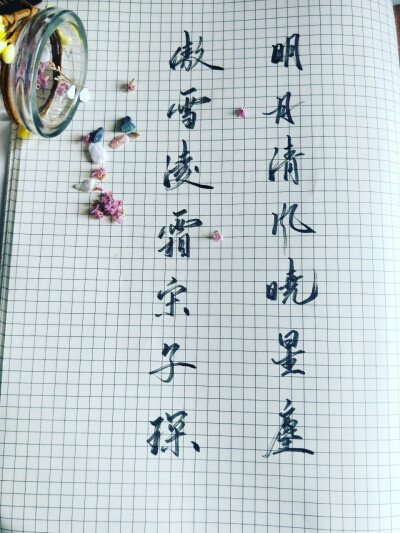 明月清风曉星塵
傲雪凌霜宋子琛